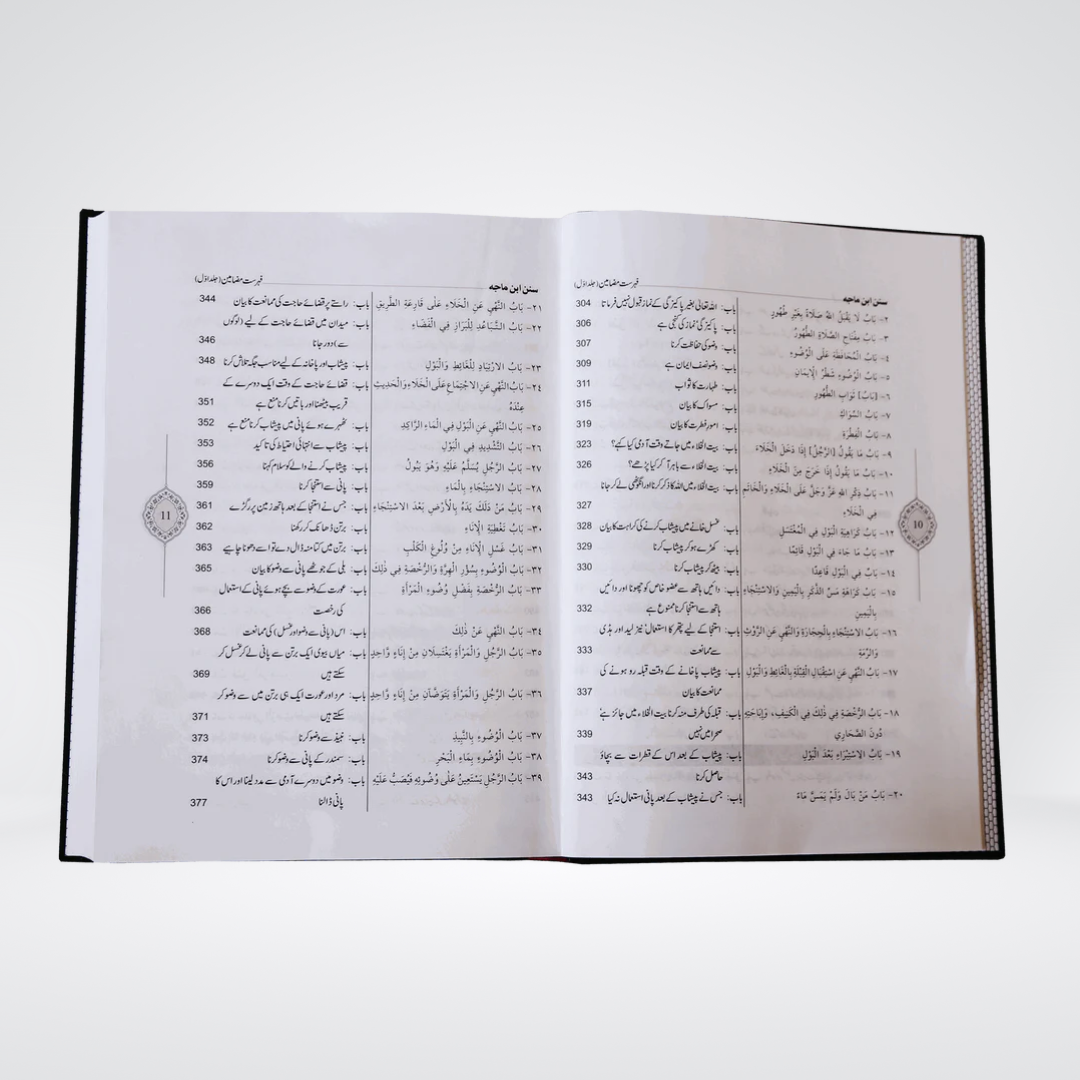 سنن ابن ماجه
فہرست مضامین (جلد اوّل)
٢- بَابُ لَا يَقْبَلُ اللهُ صَلَاةً بِغَيْرِ طُهُورٍ باب: اللہ تعالیٰ بغیر پاکیزگی کے نماز قبول نہیں فرماتا 304
٣- بَابُ مِفْتَاحِ الصَّلَاةِ الطُّهُورُ باب: پاکیزگی نماز کی کنجی ہے 306
٤- بَابُ الْمُحَافَظَةِ عَلَى الْوُضُوءِ باب: وضو کی حفاظت کرنا 307
٥- بَابُ الْوُضُوءِ شَطْرُ الْإِيمَانِ باب: وضو نصف ایمان ہے 309
٦- [بَابُ] ثَوَابِ الطُّهُورِ باب: طہارت کا ثواب 311
٧- بَابُ السِّوَاكِ باب: مسواک کا بیان 315
٨- بَابُ الْفِطْرَةِ باب: امور فطرت کا بیان 319
٩- بَابُ مَا يَقُولُ [الرَّجُلُ] إِذَا دَخَلَ الْخَلَاءَ باب: بیت الخلاء میں جاتے وقت آدمی کیا کہے؟ 323
١٠- بَابُ مَا يَقُولُ إِذَا خَرَجَ مِنَ الْخَلَاءِ باب: بیت الخلاء سے باہر آ کر کیا پڑھے؟ 326
١١- بَابُ ذِكْرِ اللهِ عَزَّ وَجَلَّ عَلَى الْخَلَاءِ وَالْخَاتَمِ باب: بیت الخلاء میں اللہ کا ذکر کرنا اور انگوٹھی لے کر جانا
فِي الْخَلَاءِ 327
١٢- بَابُ كَرَاهِيَةِ الْبَوْلِ فِي الْمُغْتَسَلِ باب: غسل خانے میں پیشاب کرنے کی کراہت کا بیان 328
١٣- بَابُ مَا جَاءَ فِي الْبَوْلِ قَائِمًا باب: کھڑے ہو کر پیشاب کرنا 329
١٤- بَابٌ فِي الْبَوْلِ قَاعِدًا باب: بیٹھ کر پیشاب کرنا 330
١٥- بَابُ كَرَاهَةِ مَسِّ الذَّكَرِ بِالْيَمِينِ وَالِاسْتِنْجَاءِ باب: دائیں ہاتھ سے عضو خاص کو چھونا اور دائیں
بِالْيَمِينِ ہاتھ سے استنجا کرنا ممنوع ہے 332
١٦- بَابُ الِاسْتِنْجَاءِ بِالْحِجَارَةِ وَالنَّهْيِ عَنِ الرَّوْثِ باب: استنجا کے لیے پتھر کا استعمال نیز لید اور ہڈی
وَالرِّمَّةِ سے ممانعت 333
١٧- بَابُ النَّهْيِ عَنِ اسْتِقْبَالِ الْقِبْلَةِ بِالْغَائِطِ وَالْبَوْلِ باب: پیشاب پاخانے کے وقت قبلہ رو ہونے کی
ممانعت کا بیان 337
١٨- بَابُ الرُّخْصَةِ فِي ذٰلِكَ فِي الْكَنِيفِ، وَإِبَاحَتِهِ باب: قبلہ کی طرف منہ کرنا بیت الخلاء میں جائز ہے'
دُونَ الصَّحَارِي صحرا میں نہیں 339
١٩- بَابُ الِاسْتِبْرَاءِ بَعْدَ الْبَوْلِ باب: پیشاب کے بعد اس کے قطرات سے بچاؤ
حاصل کرنا 343
٢٠- بَابُ مَنْ بَالَ وَلَمْ يَمَسَّ مَاءً باب: جس نے پیشاب کے بعد پانی استعمال نہ کیا 343
10
سنن ابن ماجه
فہرست مضامین (جلد اوّل)
٢١- بَابُ النَّهْيِ عَنِ الْخَلَاءِ عَلَى قَارِعَةِ الطَّرِيقِ باب: راستے پر قضائے حاجت کی ممانعت کا بیان 344
٢٢- بَابُ التَّبَاعُدِ لِلْبَرَازِ فِي الْفَضَاءِ باب: میدان میں قضائے حاجت کے لیے (لوگوں
سے) دور جانا 346
٢٣- بَابُ الِارْتِيَادِ لِلْغَائِطِ وَالْبَوْلِ باب: پیشاب اور پاخانہ کے لیے مناسب جگہ تلاش کرنا 348
٢٤- بَابُ النَّهْيِ عَنِ الِاجْتِمَاعِ عَلَى الْخَلَاءِ وَالْحَدِيثِ باب: قضائے حاجت کے وقت ایک دوسرے کے
عِنْدَهُ قریب بیٹھنا اور باتیں کرنا منع ہے 351
٢٥- بَابُ النَّهْيِ عَنِ الْبَوْلِ فِي الْمَاءِ الرَّاكِدِ باب: ٹھہرے ہوئے پانی میں پیشاب کرنا منع ہے 352
٢٦- بَابُ التَّشْدِيدِ فِي الْبَوْلِ باب: پیشاب سے انتہائی احتیاط کی تاکید 353
٢٧- بَابُ الرَّجُلِ يُسَلَّمُ عَلَيْهِ وَهُوَ يَبُولُ باب: پیشاب کرنے والے کو سلام کہنا 356
٢٨- بَابُ الِاسْتِنْجَاءِ بِالْمَاءِ باب: پانی سے استنجا کرنا 359
٢٩- بَابُ مَنْ دَلَكَ يَدَهُ بِالْأَرْضِ بَعْدَ الِاسْتِنْجَاءِ باب: جس نے استنجا کے بعد ہاتھ زمین پر رگڑے 361
٣٠- بَابُ تَغْطِيَةِ الْإِنَاءِ باب: برتن ڈھانک کر رکھنا 362
٣١- بَابُ غَسْلِ الْإِنَاءِ مِنْ وُلُوغِ الْكَلْبِ باب: برتن میں کتا منہ ڈال دے تو اسے دھونا چاہیے 363
٣٢- بَابُ الْوُضُوءِ بِسُؤْرِ الْهِرَّةِ وَالرُّخْصَةِ فِي ذٰلِكَ باب: بلی کے جوٹھے پانی سے وضو کا بیان 365
٣٣- بَابُ الرُّخْصَةِ بِفَضْلِ وُضُوءِ الْمَرْأَةِ باب: عورت کے وضو سے بچے ہوئے پانی کے استعمال
کی رخصت 366
٣٤- بَابُ النَّهْيِ عَنْ ذٰلِكَ باب: اس (پانی سے وضو اور غسل) کی ممانعت 368
٣٥- بَابُ الرَّجُلِ وَالْمَرْأَةِ يَغْتَسِلَانِ مِنْ إِنَاءٍ وَاحِدٍ باب: میاں بیوی ایک برتن سے پانی لے کر غسل کر
سکتے ہیں 369
٣٦- بَابُ الرَّجُلِ وَالْمَرْأَةِ يَتَوَضَّآنِ مِنْ إِنَاءٍ وَاحِدٍ باب: مرد اور عورت ایک ہی برتن میں سے وضو کر
سکتے ہیں 371
٣٧- بَابُ الْوُضُوءِ بِالنَّبِيذِ باب: نبیذ سے وضو کرنا 373
٣٨- بَابُ الْوُضُوءِ بِمَاءِ الْبَحْرِ باب: سمندر کے پانی سے وضو کرنا 374
٣٩- بَابُ الرَّجُلِ يَسْتَعِينُ عَلَى وُضُوئِهِ فَيُصَبُّ عَلَيْهِ باب: وضو میں دوسرے آدمی سے مدد لینا اور اس کا
پانی ڈالنا 377
11